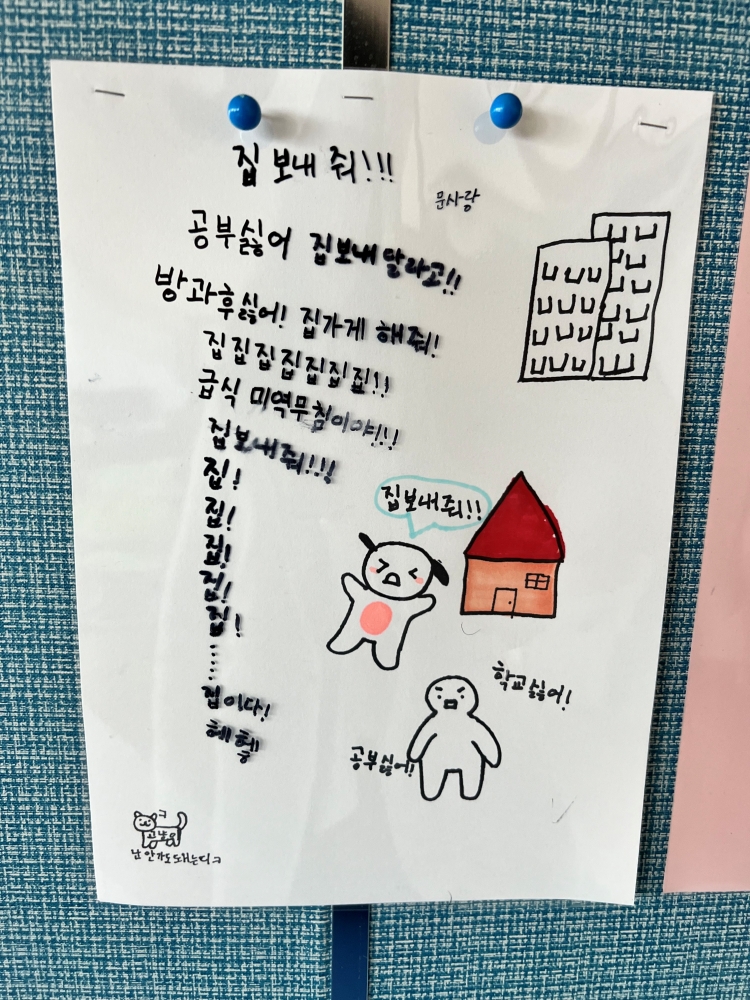 집 보내 줘!!!
문사랑
공부싫어 집보내 달라고!!
방과후싫어! 집가게 해줘!
집집집집집집집!!
급식 미역무침이야!!!
집보내줘!!!
집!
집!
집!
집!
집!
......
집이다!
헤헿!!
집보내줘!!
학교싫어!
공부싫어!
ㅋ
난 안가도 돼는디ㅋ